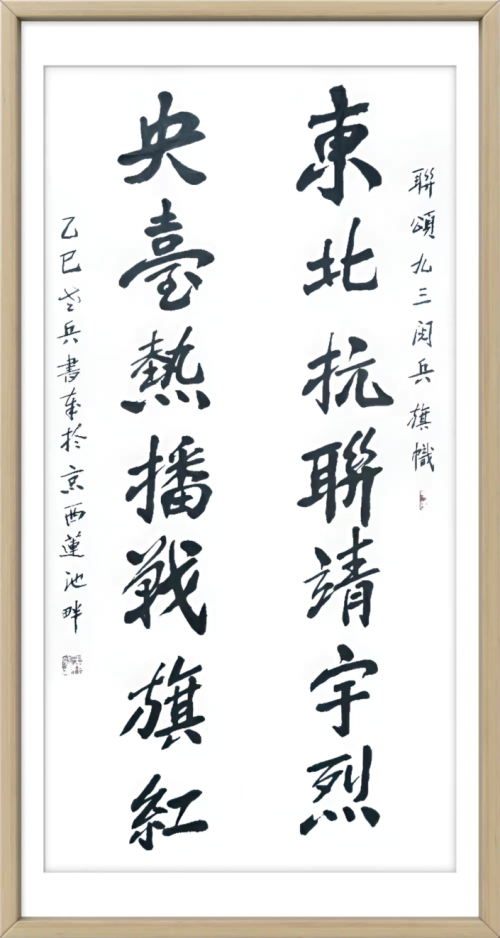 聯頌九三閱兵旗幟
東北抗聯靖宇烈
央臺熱播戰旗紅
乙巳老兵書奉於京西蓮池畔